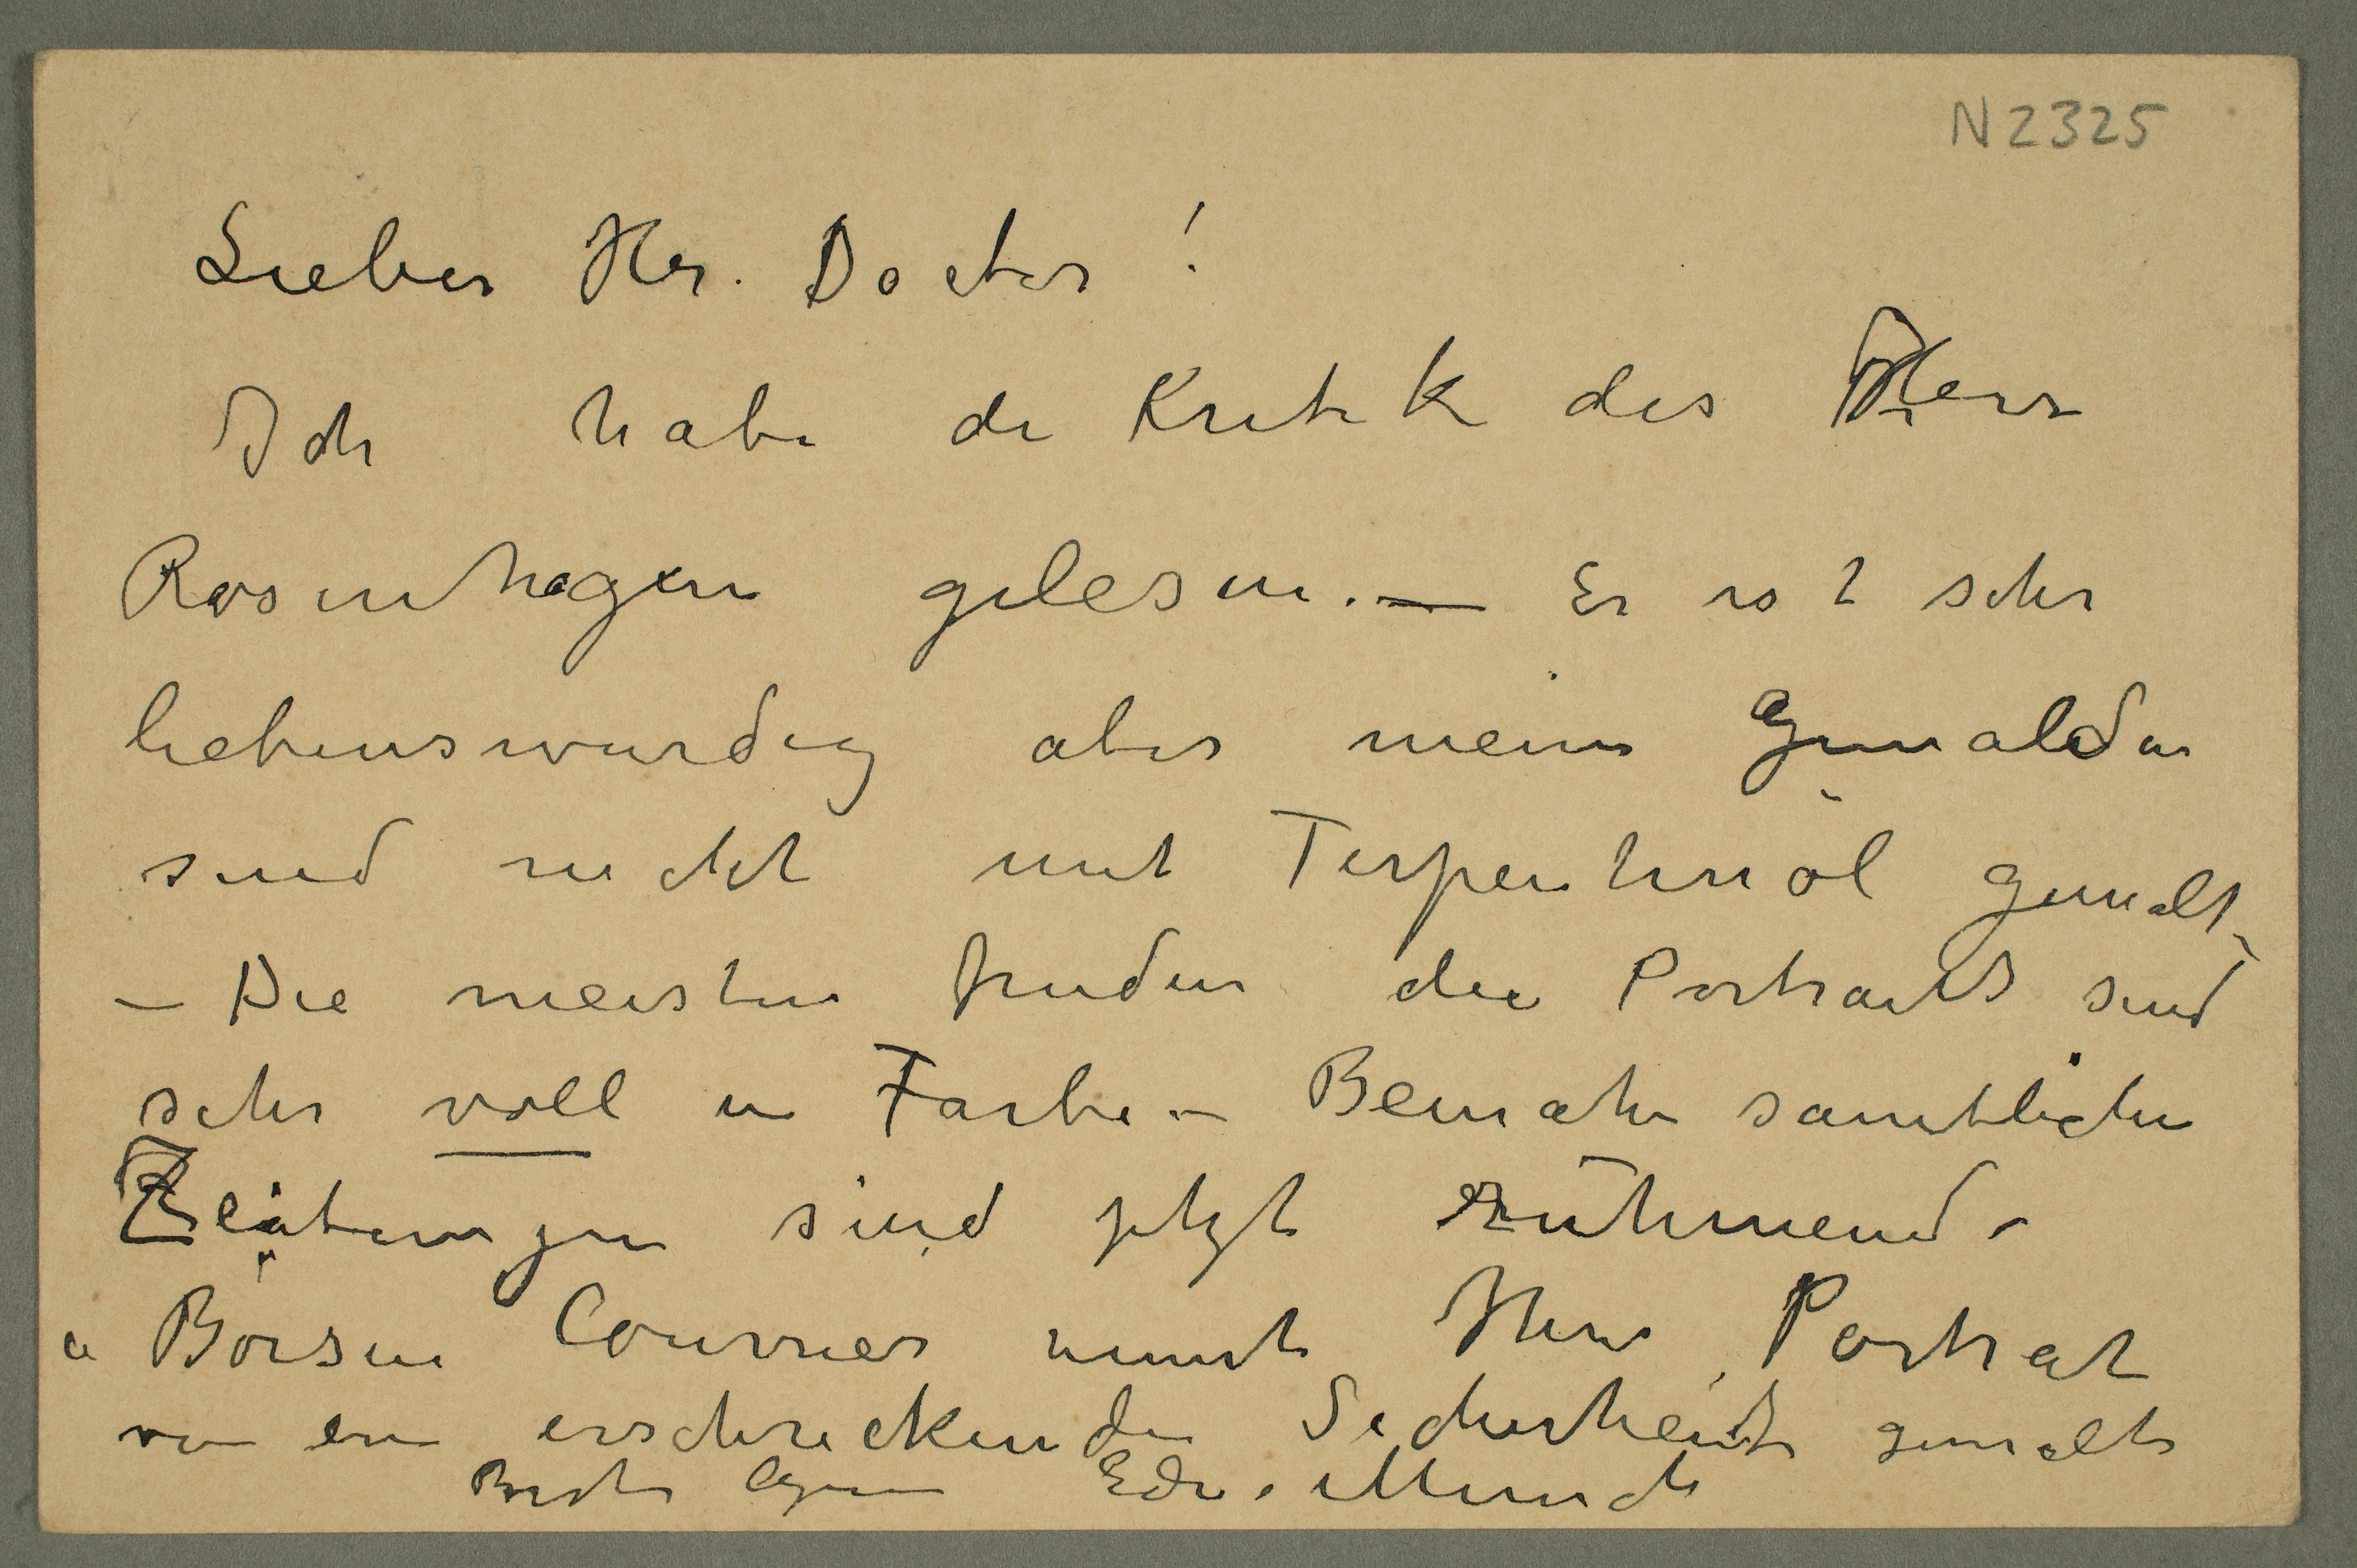 N 2325
Lieber Hr. Doctor!
Ich habe die Kritik des Herr
Rosenhagen gelesen. — Er ist sehr
liebenswurdig aber meine Gemalder
sind nicht mit Terpentinöl gemalt
– Die meisten finden die Portraits sind
sehr voll in Farbe – Beinahe samtliche
Zeitungen sind jetzt rühmend –
Börsen Courrier nennt Ihre Portrat
von ein erschreckende Sicherheit gemalt
Beste Edv. Munch